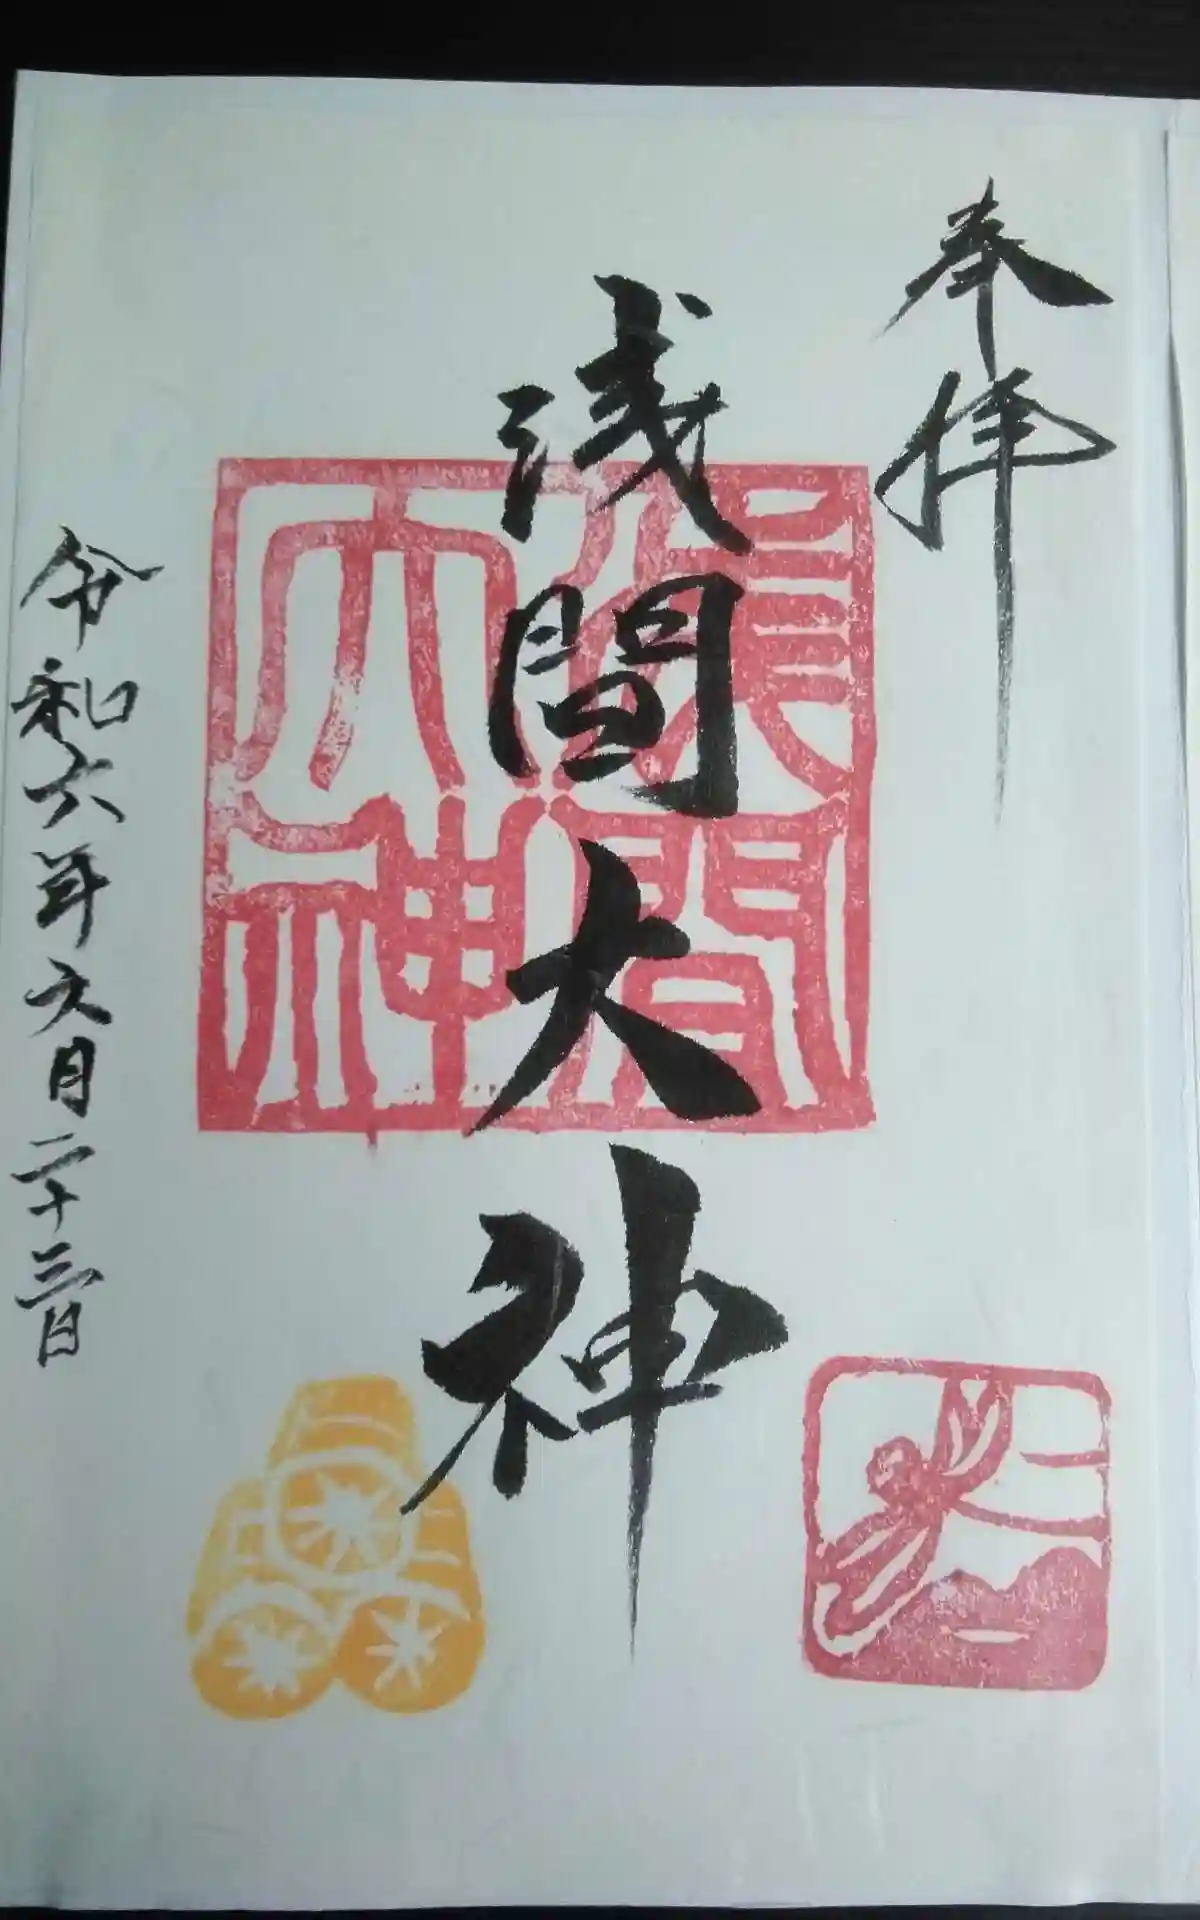 奉拝
浅間大神
長間大神
令和六年六月二十三日